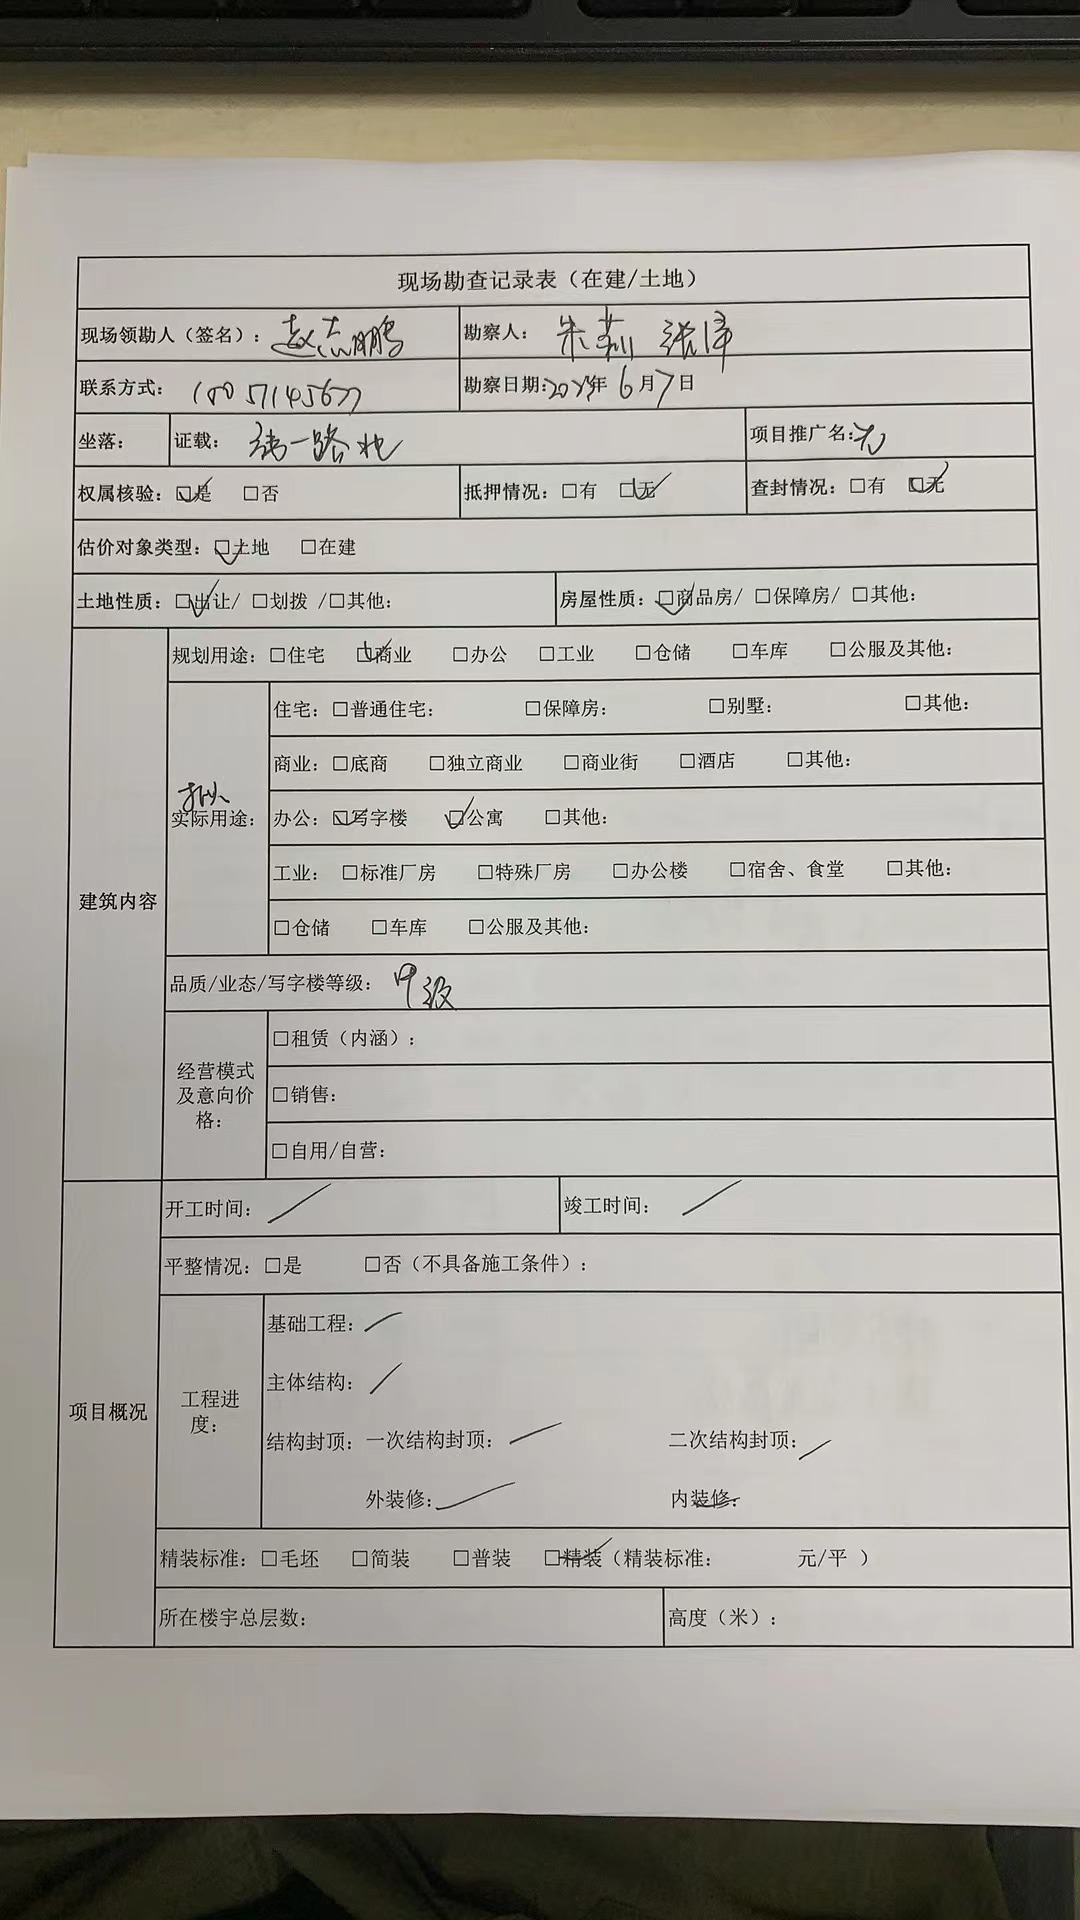 现场勘查记录表（在建/土地）
现场领勘人（签名）：赵志鹏 勘察人： 朱莉 张泽
联系方式： 勘察日期:2023年6月7日
坐落： 证载： 纬一路北 项目推广名:无
权属核验：☑是 □否 抵押情况：□有 ☑无 查封情况：□有 ☑无
估价对象类型：☑土地 □在建
土地性质：☑出让/ □划拨 /□其他： 房屋性质：☑商品房/ □保障房/ □其他：
建筑内容
规划用途：□住宅 ☑商业 □办公 □工业 □仓储 □车库 □公服及其他：
拟
实际用途：
住宅：□普通住宅： □保障房： □别墅： □其他：
商业：□底商 □独立商业 □商业街 □酒店 □其他：
办公：☑写字楼 ☑公寓 □其他：
工业： □标准厂房 □特殊厂房 □办公楼 □宿舍、食堂 □其他：
□仓储 □车库 □公服及其他：
品质/业态/写字楼等级： 甲级
经营模式
及意向价
格：
□租赁（内涵）：
□销售：
□自用/自营：
项目概况
开工时间： / 竣工时间： /
平整情况：□是 □否（不具备施工条件）：
工程进
度：
基础工程：/
主体结构：/
结构封顶：一次结构封顶：/ 二次结构封顶：/
外装修：/ 内装修：
精装标准：□毛坯 □简装 □普装 ☑精装（精装标准： 元/平 ）
所在楼宇总层数： 高度（米）：